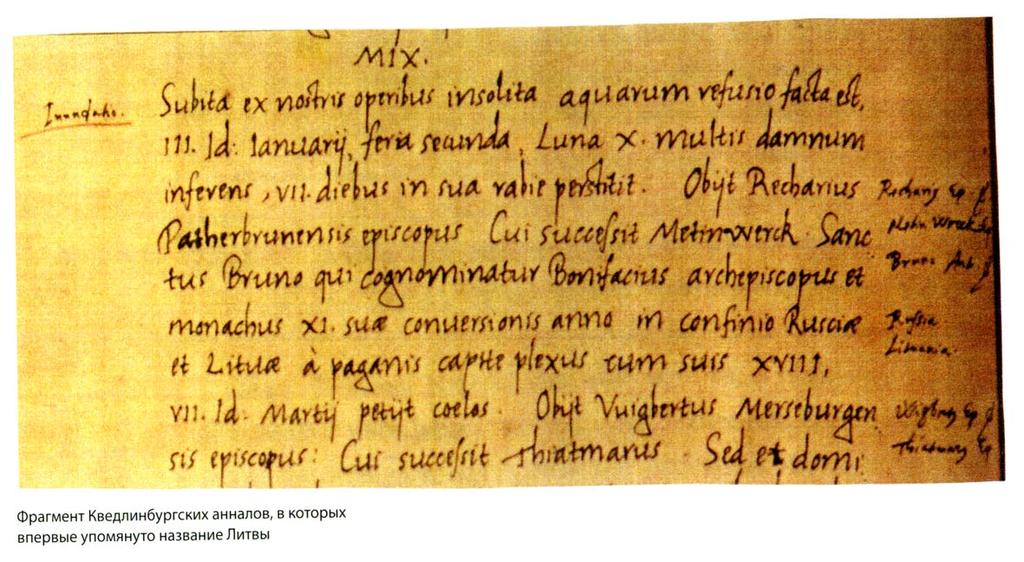 MIX.
Inundatio.
Subita ex nostris operibus insolita aquarum refusio facta est,
III. Id: Ianuarij, feria secunda, Luna X. multis damnum
inferens, VII. diebus in sua rabie perstitit. Obijt Recharius
Patherbrunensis episcopus Cui successit Metin-werck. Sanc
tus Bruno qui cognominatur Bonifacius archepiscopus et
monachus XI. suæ conuersionis anno in confinio Rusciæ
et Lituæ à paganis capite plexus cum suis XVIII,
VII. Id: Martij petijt coelos. Obijt Vuigbertus Merseburgen
sis episcopus: Cui successit Thiatmarus. Sed et domi
Ep
Bruno
Russia
Lituania.
Ep
Ep
Фрагмент Кведлинбургских анналов, в которых
впервые упомянуто название Литвы